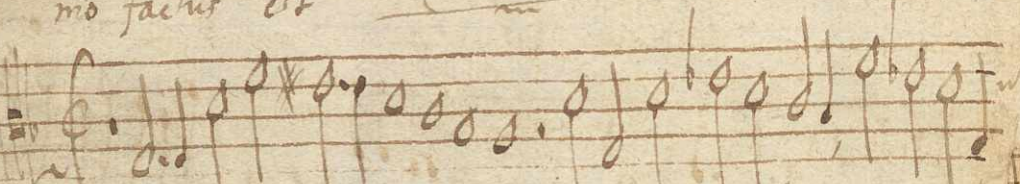 mo factus est